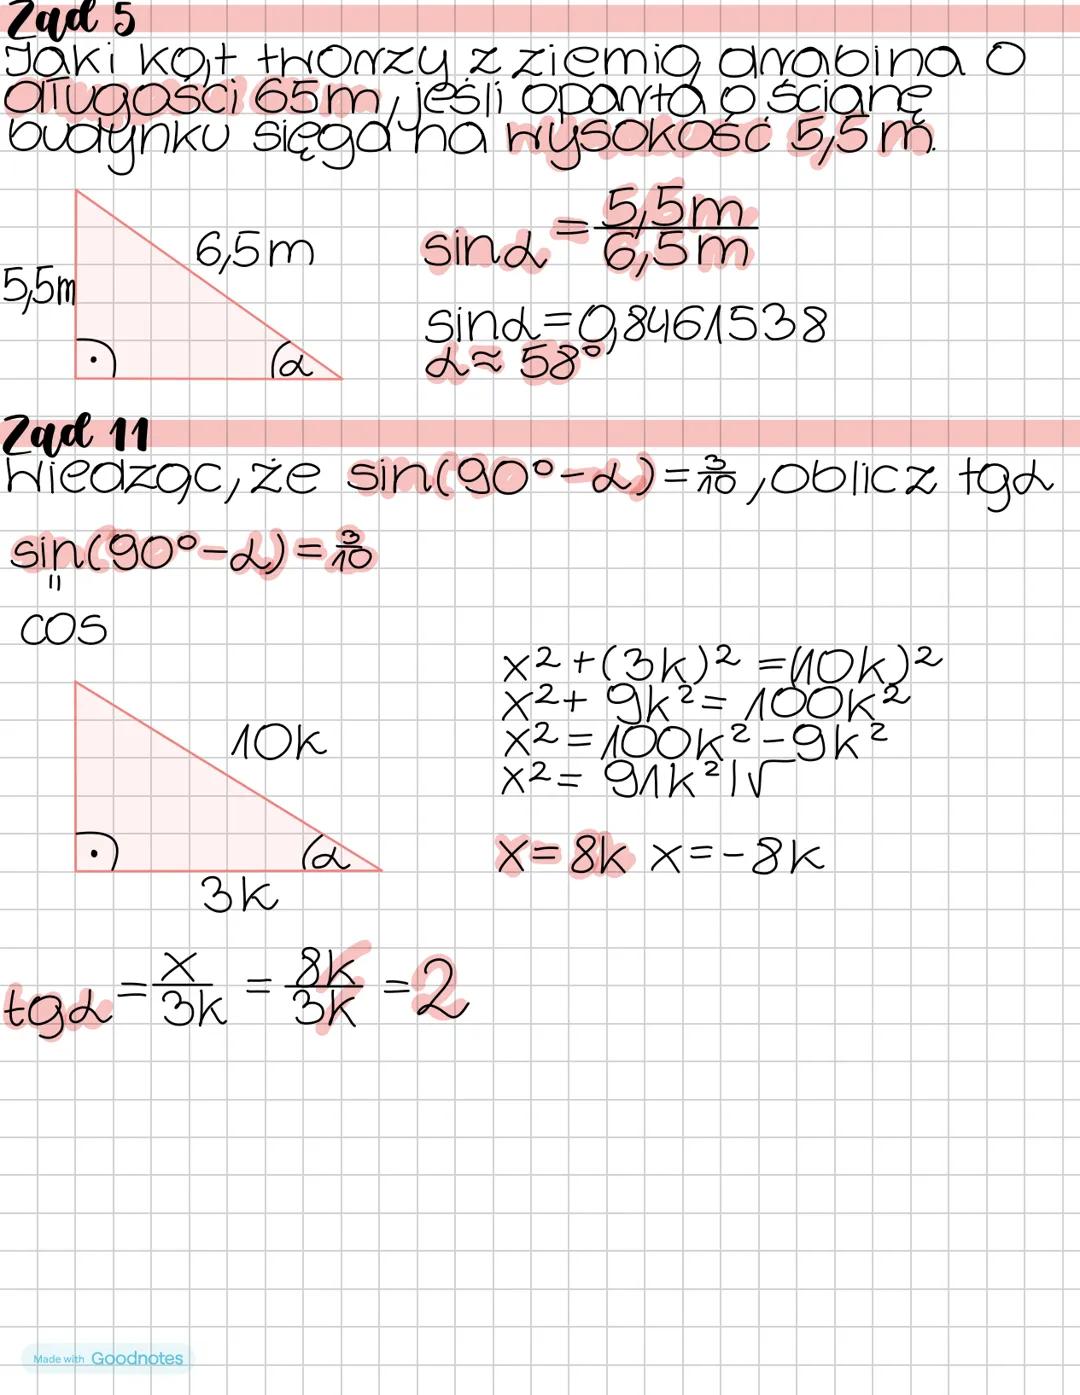 Zad 5
Jaki kąt tworzy z ziemią drabina o
długości 65m, jeśli oparta o ścianę
budynku sięga na wysokość 5,5m.
6,5m
5,5m
α
sinα = 5,5m / 6,5m
sinα=0,8461538
α≈ 58°
Zad 11
Wiedząc, że sin(90°-α)=3/10, oblicz tgα
sin(90°-α)=3/10
=
cos
10k
α
3k
x²+(3k)²=(10k)²
x²+9k²=100k²
x²=100k²-9k²
x²=91k²|√
x=8k x=-8k
tgα = x/3k = 8k/3k = 2
Made with Goodnotes